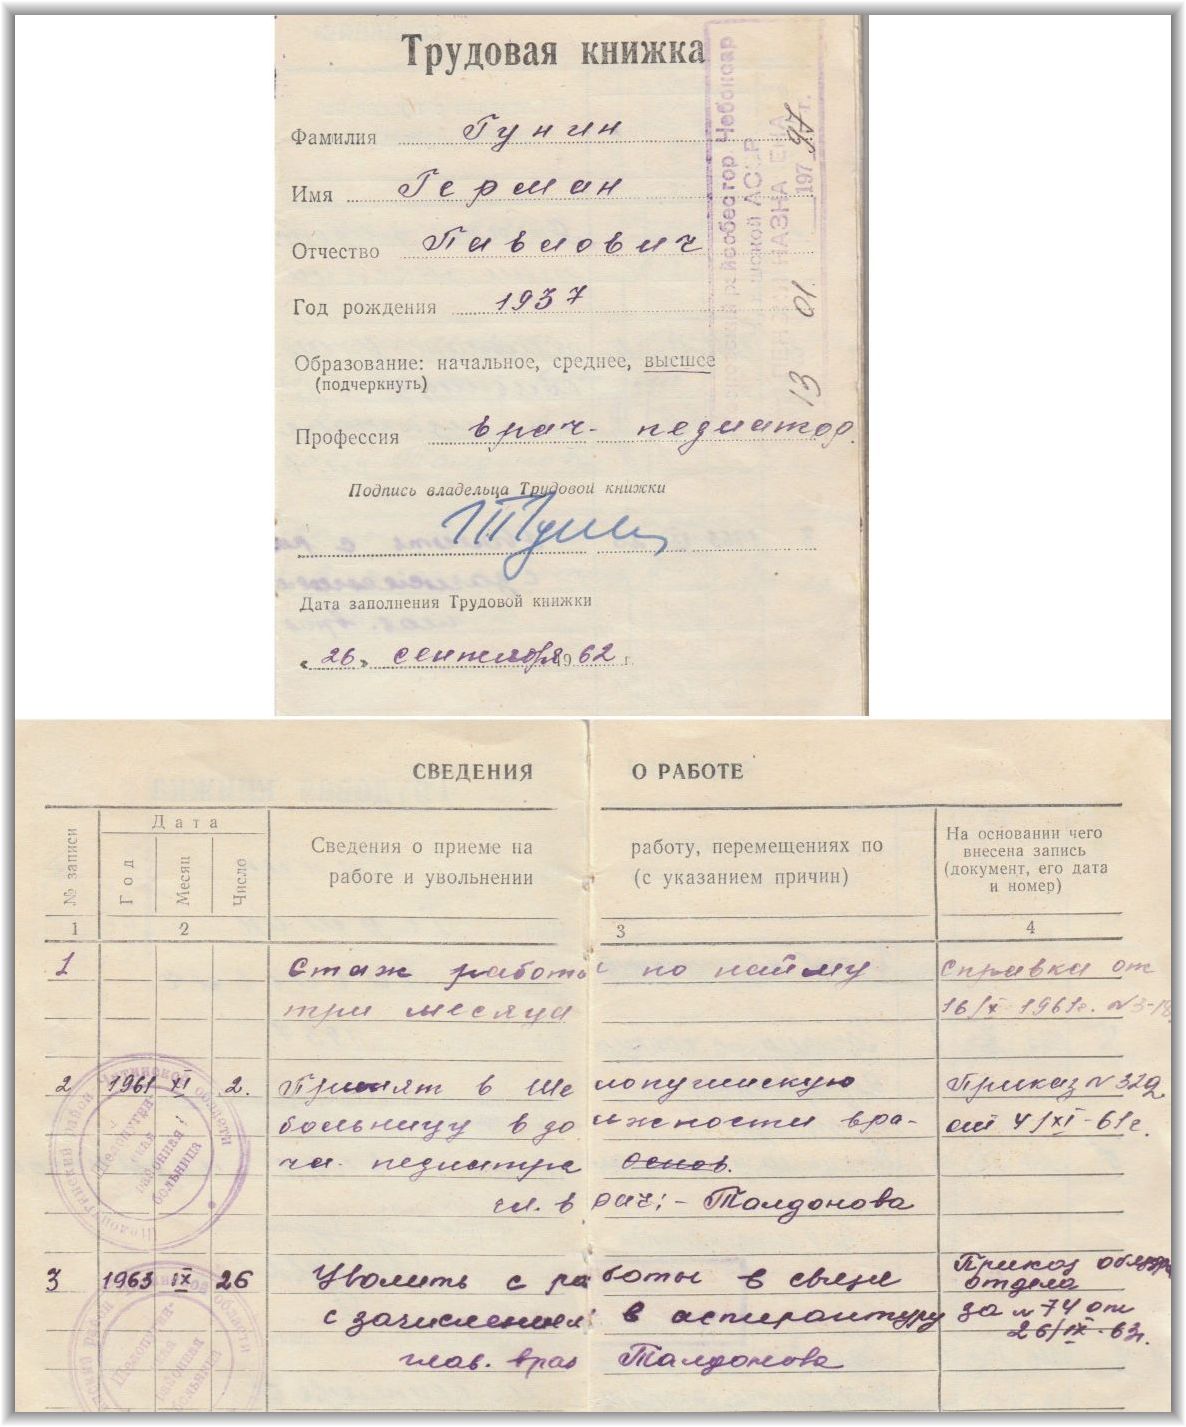 Трудовая книжка
Фамилия Гунин
Имя Герман
Отчество Павлович
Год рождения 1937
Образование: начальное, среднее, высшее
(подчеркнуть)
Профессия врач- педиатор.
Подпись владельца Трудовой книжки
Дата заполнения Трудовой книжки
«26» сентября 1962 г.
райсобес гор. Чебоксар
АССР
НАЗНАЧЕНА
13 01. 1997 г.
СВЕДЕНИЯ О РАБОТЕ
№ записи
Дата
Год
Месяц
Число
Сведения о приеме на работу, перемещениях по
работе и увольнении (с указанием причин)
На основании чего
внесена запись
(документ, его дата
и номер)
1 2 3 4
1 Стаж работы по найму Справка от
три месяца 16/X-1961г. №3-18
2 1961 XI 2. Принят в Шелопугинскую Приказ №32
больницу в должности вра- от 4/XI-61г.
ча- педиатра основ.
гл. врач: - Талдонова
Шелопугин-
ская
районная
больница
Читинской области
3 1963 IX 26 Уволить с работы в связи Приказ
отдела
с зачислением в аспирантуру за №74 от
26/IX-63г.
глав. врач Талдонова
Шелопугин-
ская
районная
больница